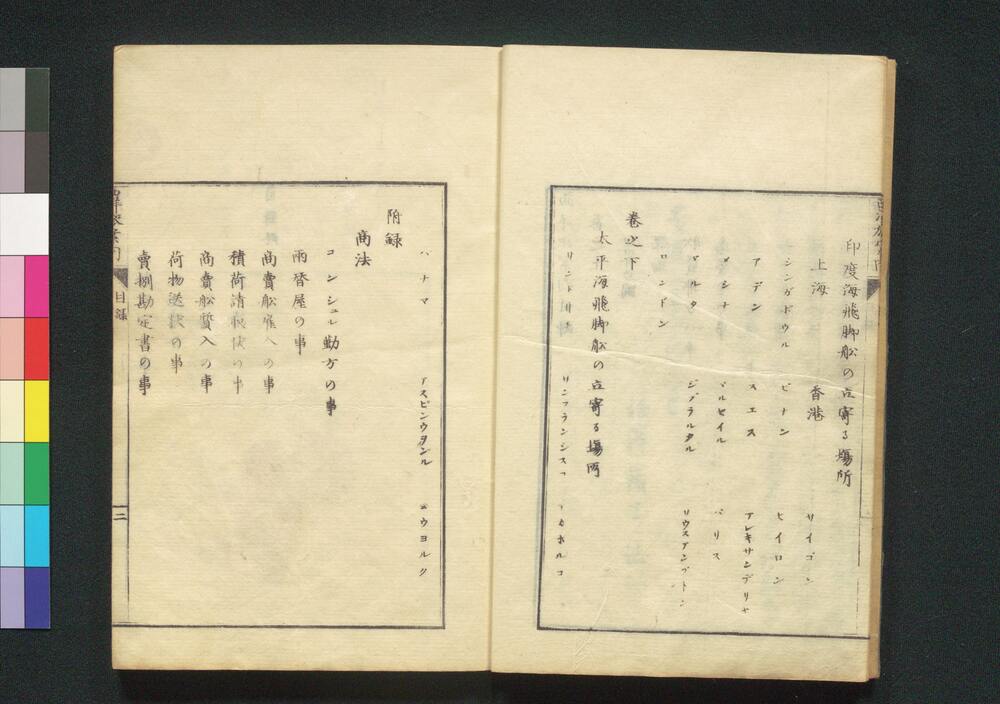 印度海飛脚舩の立寄る場所
上海 香港 サイゴン
シンガポウル ピナン セイロン
アデン スエス アレキサンデリヤ
メシナ マルセイル パリス
マルタ ジブラルタル サウスアンプトン
ロンドン
巻之下
太平海飛脚舩の立寄る場所
サンフランシスコ アカホルコ
パナマ アスピンウヲル ニウヨルク
附録
商法
コンシュル勤方の事
両替屋の事
商賣舩雇入の事
積荷請取状の事
商賣舩質入の事
荷物送状の事
賣捌勘定書の事
目録
二